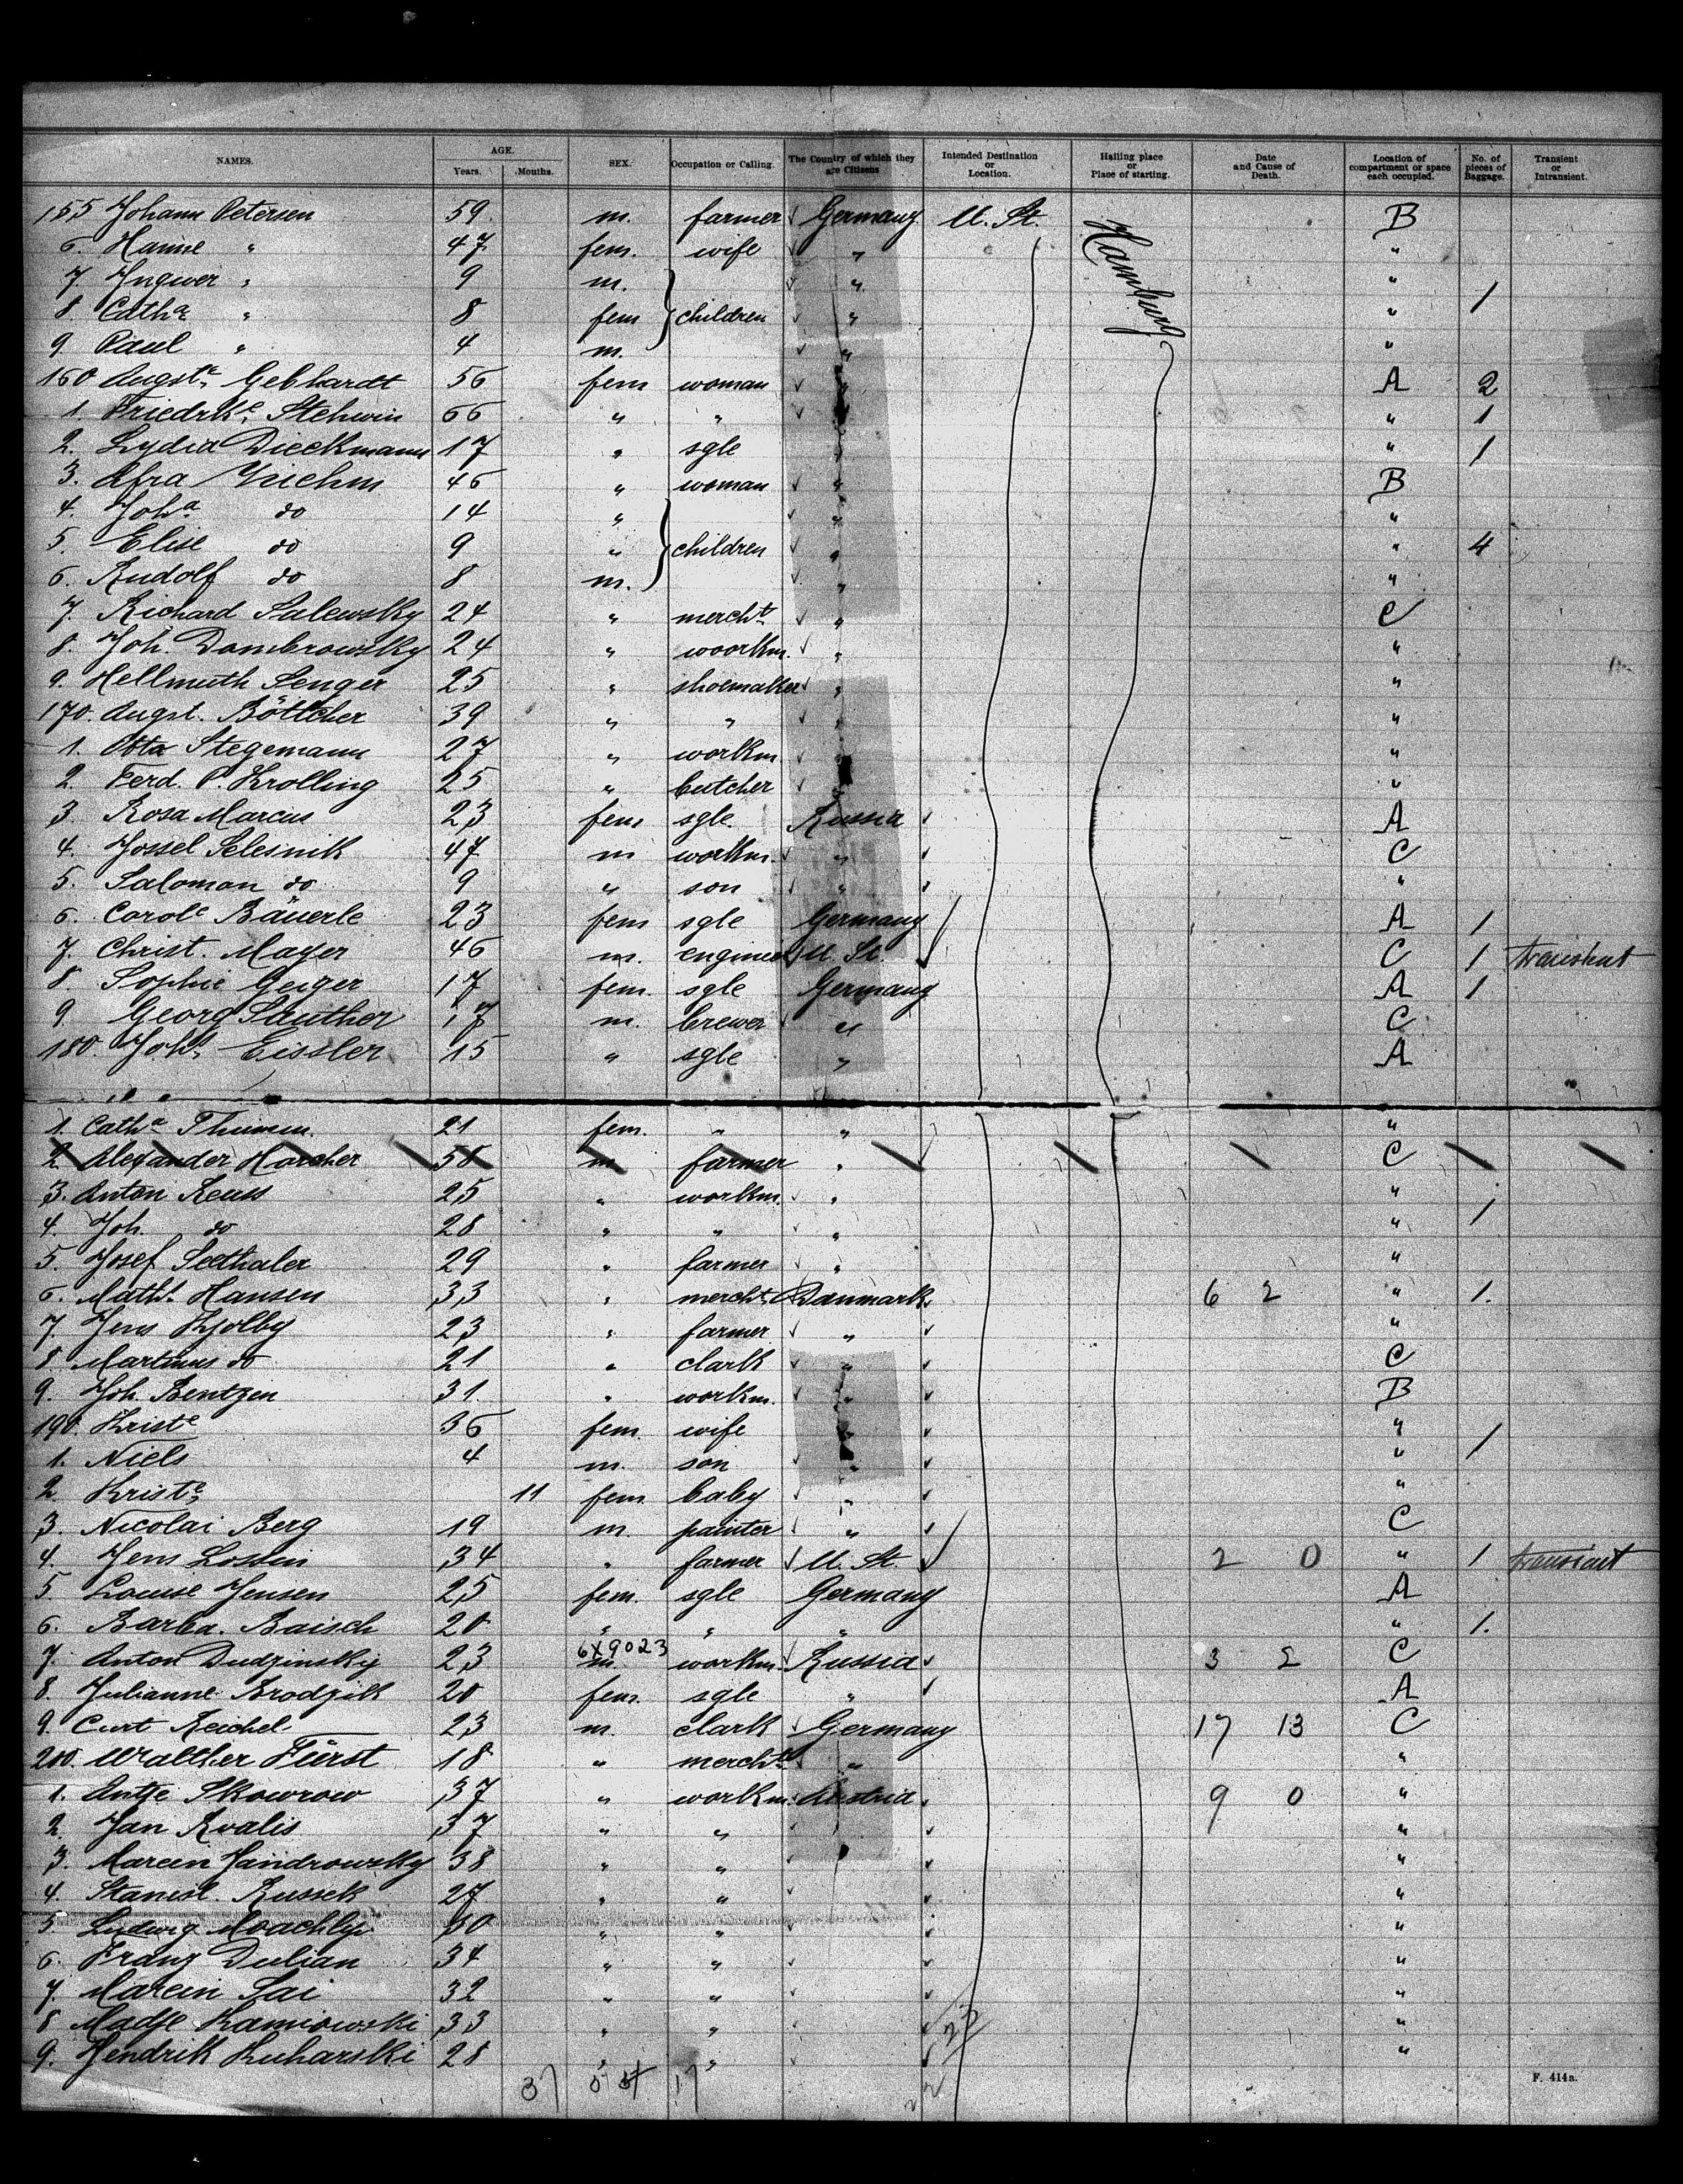 NAMES. AGE. Years. Months. SEX. Occupation or Calling. The Country of which they are Citizens Intended Destination or Location. Hailing place or Place of starting. Date and Cause of Death. Location of compartment or space each occupied. No. of pieces of Baggage. Transient or Intransient.
155 Johann Petersen 59 m. farmer Germany U. St. Hamburg B
6. Hanne " 47 fem. wife " "
7. Ingwer " 9 m. " "
8. Catha " 8 fem children " " 1
9. Paul " 4 m. " "
160 Augste Gebhardt 56 fem woman " A 2
1 Friedrke Stehwin 66 " " " " 1
2. Lydia Dieckmann 17 " sgle " " 1
3. Afra 46 " woman " B
4. Joha do 14 " " "
5. Elise do 9 " children " " 4
6. Rudolf do 8 m. " "
7. Richard Salewsky 24 " mercht " C
8. Joh. Dombrowsky 24 " woorkm. " "
9. Hellmuth Senger 25 " shoemaker " "
170. Augst. Böttcher 39 " " " "
1. Otto Stegemann 27 " workm " "
2. Ferd. P. Krolling 25 " butcher " "
3. Rosa Marcus 23 fem sgle. Russia A
4. Jossel Selesnik 47 m workm. " C
5. Saloman do 9 " son " "
6. Carole Bäuerle 23 fem sgle Germany A 1
7. Christ. Mayer 46 m. engineer U. St. C 1 transient
8 Sophie Geiger 17 fem. sgle Germany A 1
9. Georg Sauther 17 m. brewer " C
180. Johs Eissler 15 " sgle " A
1. Catha Thumm. 21 fem. " " "
2 Alexander Harcher 58 m farmer " C
3. Anton Reuss 25 " workm. " "
4. Joh. do 28 " " " " 1
5. Josef Seethaler 29 " farmer " "
6. Maths. Hansen 33 " mercht. Danmark 6 2 " 1.
7. Jens Kjolby 23 " farmer " "
8 Martinus do 21 " clark " C
9. Joh. Bentzen 31. " workm. " B
190. Kriste 36 fem. wife " "
1. Niels 4 m. son " " 1
2. Kriste 11 fem. baby " "
3. Nicolai Berg 19 m. painter " C
4. Jens Lossin 34 " farmer U. St. 2 0 " 1 transient
5. Louise Jensen 25 fem. sgle Germany A
6. Barba. Baisch 20 " " " " 1.
6X9023
7. Anton Dudzinsky 23 m. workm. Russia 3 2 C
8. Julianne Brodzik 20 fem. sgle " A
9. Curt Reichel 23 m. clark Germany 17 13 C
200. Walther Fürst 18 " mercht " "
1. Antje Skowrow 37 " workm. Austria 9 0 "
2. Jan Kvalis 37 " " "
3. Marcin Jandrowsky 38 " " "
4. Stanisl. Russek 27 " " "
5. Ludwig 30 " " "
6. Franz Dulian 34 " " "
7. Marcin Sai 32 " " "
8 Madje Kamiowski 33 " " "
9. Hendrik Kuharski 28 " " "
37 17
F. 414a.